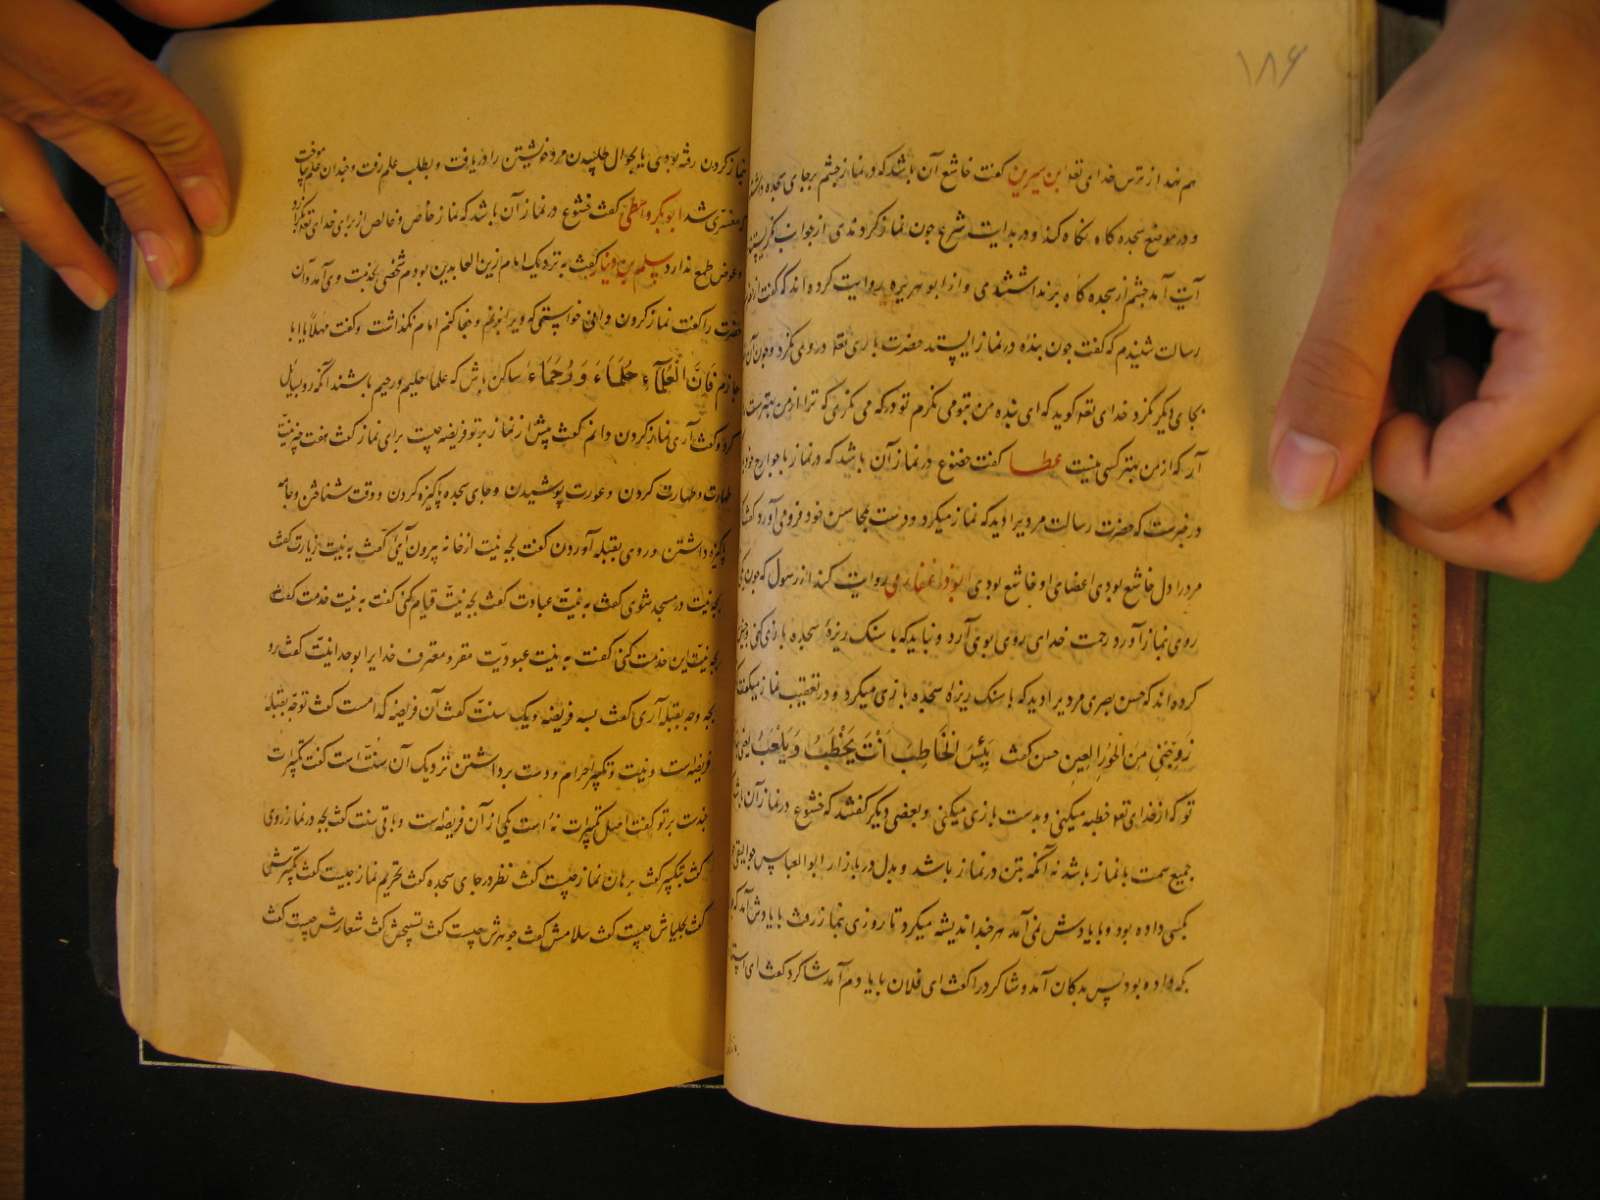 ۱۸۶
هم نهد از ترس خدای تعه ابن سیرین کفت خاشع آن باشد که در نماز چشم بر جای سجده
و در موضع سجده کاه نکاه کند و در بدایت شرع چون نماز کردندی از جوانب
آیت آمد چشم از سجده کاه برنداشتندی و از ابو هریره روایت کرده اند که کفت از
رسالت شنیدم که کفت چون بنده در نماز ایستد حضرت باری تعه در وی نکرد و چون آن
بجای دیکر نکرد خدای تعه کوید که ای بنده من بتو می نکرم تو در که می نکری که ترا از من بهتر است
آر که از من بهتر کسی نیست عطا کفت خضوع در نماز آن باشد که در نماز با جوارح خود
در خبرست که حضرت رسالت مردی را دید که نماز میکرد و دست بمحاسن خود فرو می آورد کفت
مرد را دل خاشع بودی اعضای او خاشع بودی ابوذر غفاری روایت کند از رسول که چون
روی نماز آورد رحمت خدای روی بوی آرد و نباید که با سنک ریزهٔ سجده بازی کنی
کرده اند که حسن بصری مردی را دید که با سنک ریزه سجده بازی میکرد و در تعقیب نماز میکفت
زوجنی من الحور العین حسن کفت بئس الخاطب انت یخطب و یلعب یعنی
تو که از خدای تعه خطبه میکنی و بدست بازی میکنی و بعضی دیکر کفتند که خشوع در نماز آن
جمیع همت با نماز باشد نه آنکه بتن در نماز باشد و بدل در بازار ابو العباس جوالیقی
بکسی داده بود و با یادش نمی آمد هر چند اندیشه میکرد تا روزی بنماز رفت با یادش آمد که
بکه داده بود پس بدکان آمد و شاکرد را کفت ای فلان با یادم آمد شاکرد کفت ای
نماز کردن رفته بودی یا بجوال طلبیدن مرد خویشتن را دریافت و بطلب علم رفت و چندان علم
مفسری شد ابو بکر واسطی کفت خشوع در نماز آن باشد که نماز خاص و خالص از برای خدای تعه
و عوض طمع ندارد سلم بن دینار کفت به نزدیک امام زین العابدین بودم شخصی بخدمت وی آمد و آن
حضرت را کفت نماز کردن دانی خواستم که ویرا برنجانم و جفا کنم امام نکذاشت و کفت مهلا یا ابا
حازم فان العلماء حلماء و رحماء ساکن باش که علما حلیم و رحیم باشند آنکه رو بسایل
کرد و کفت آری نماز کردن دانم کفت پیش از نماز بر تو فریضه چیست برای نماز کفت هفت چیز نیت
طهارت و طهارت کردن و عورت پوشیدن و جای سجده پاکیزه کردن و وقت شناختن و جامه
پاکیزه داشتن و روی بقبله آوردن کفت بچه نیت از خانه بیرون آیی کفت به نیت زیارت کفت
بچه نیت در مسجد شوی کفت به نیت عبادت کفت بچه نیت قیام کنی کفت به نیت خدمت کفت
بچه نیت این خدمت کنی کفت به نیت عبودیت مقر و معترف خدایرا بوحدانیت کفت رو
بچه وجه بقبله آری کفت بسه فریضه و یک سنت کفت آن فریضه کدامست کفت توجه بقبله
فریضه است و نیت و تکبیر احرام و دست برداشتن نزدیک آن سنت است کفت تکبیرات
چندست بر تو کفت اصل تکبیرات نه است یکی از آن فریضه است و باقی سنت کفت بچه در نماز روی
کفت بتکبیر کفت برهان نماز چیست کفت نظر در جای سجده کفت تحریم نماز چیست کفت تکبیرش
کفت تحلیلش چیست کفت سلامش کفت جوهرش چیست کفت تسبیحش کفت شعارش چیست کفت